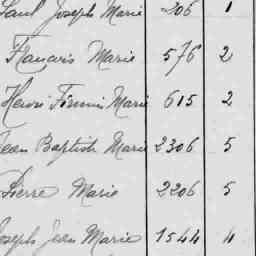 Paul Joseph Marie 206 1
Francois Marie 576 2
Henri Firmin Marie 615 2
Jean Baptiste Marie 2306 5
Pierre Marie 2206 5
Joseph Jean Marie 1544 4